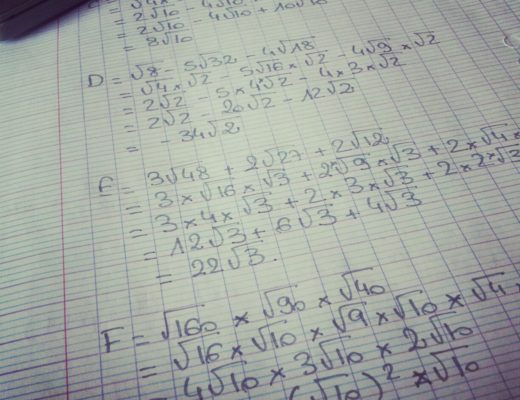 = 2√10 - 4√10 + 10√10
= 8√10
D = √8 - 5√32 - 4√18
= √4 × √2 - 5√16 × √2 - 4√9 × √2
= 2√2 - 5 × 4√2 - 4 × 3 × √2
= 2√2 - 20√2 - 12√2
= - 34√2
E = 3√48 + 2√27 + 2√12
= 3 × √16 × √3 + 2√9 × √3 + 2 × √4 ×
= 3 × 4 × √3 + 2 × 3 × √3 + 2 × 2 × √3
= 12√3 + 6√3 + 4√3
= 22√3.
F = √160 × √90 × √40
= √16 × √10 × √9 × √10 × √4 ×
= 4√10 × 3√10 × 2√10
(√10)² × √10